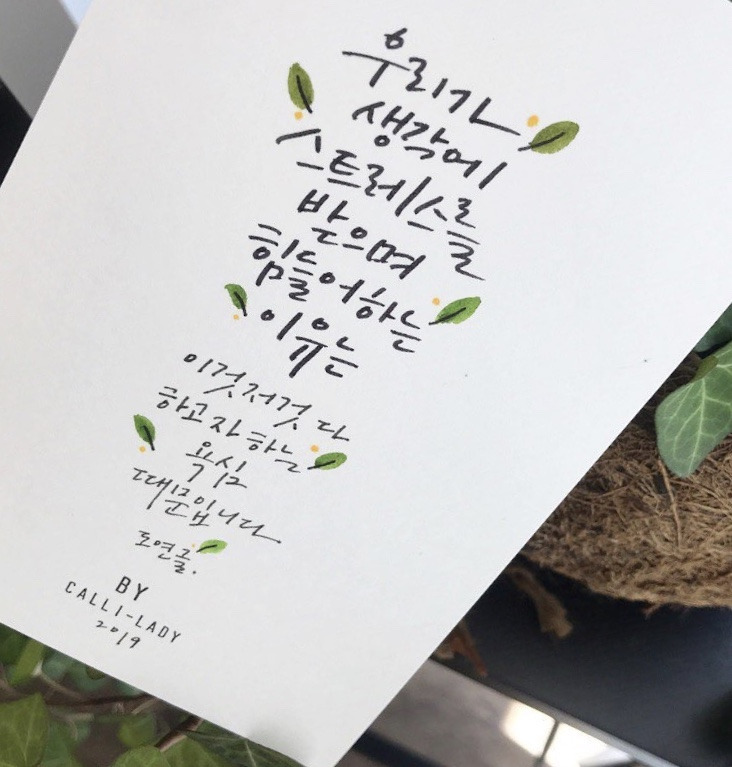 우리가
생각에
스트레스를
받으며
힘들어하는
이유는
이것저것 다
하고자 하는
욕심
때문입니다
도연글.
BY
CALLI-LADY
2019